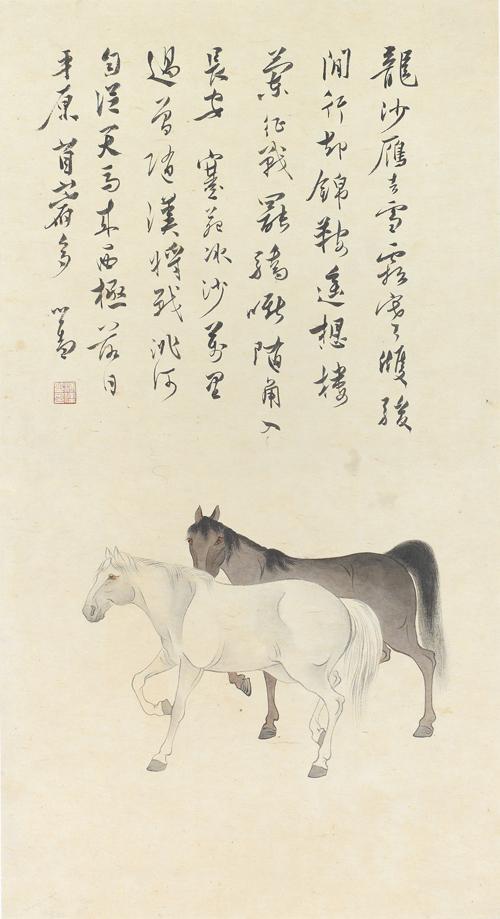 龍沙雁去雪霜寒雙駿
閒行卸錦鞍遙想樓
蘭征戰罷驕嘶隨角入
長安 塞苑冰沙萬里
過曾隨漢將戰洮河
自從天馬來西極落日
平原苜蓿多 心畬